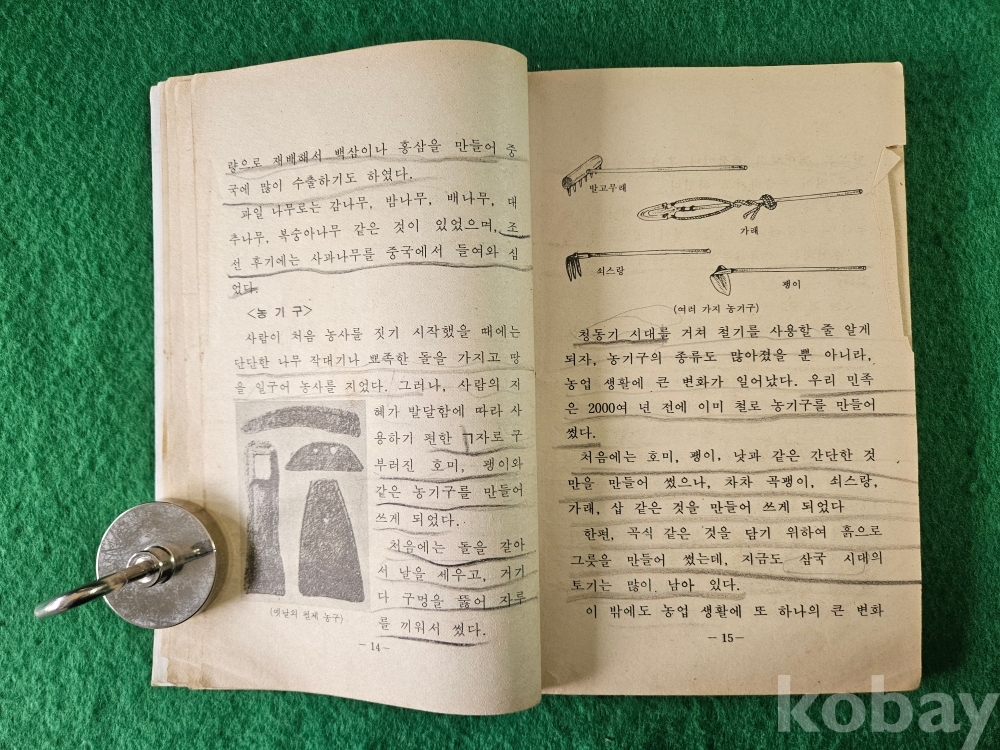 량으로 재배해서 백삼이나 홍삼을 만들어 중
국에 많이 수출하기도 하였다.
과일 나무로는 감나무, 밤나무, 배나무, 대
추나무, 복숭아나무 같은 것이 있었으며, 조
선 후기에는 사과나무를 중국에서 들여와 심
었다.
<농 기 구>
사람이 처음 농사를 짓기 시작했을 때에는
단단한 나무 작대기나 뾰족한 돌을 가지고 땅
을 일구어 농사를 지었다. 그러나, 사람의 지
혜가 발달함에 따라 사
용하기 편한 ㄱ자로 구
부러진 호미, 괭이와
같은 농기구를 만들어
쓰게 되었다.
처음에는 돌을 갈아
서 날을 세우고, 거기
다 구멍을 뚫어 자루
를 끼워서 썼다.
(옛날의 철제 농구)
— 14 —
발고무래
가래
쇠스랑
괭이
(여러 가지 농기구)
청동기 시대를 거쳐 철기를 사용할 줄 알게
되자, 농기구의 종류도 많아졌을 뿐 아니라,
농업 생활에 큰 변화가 일어났다. 우리 민족
은 2000여 년 전에 이미 철로 농기구를 만들어
썼다.
처음에는 호미, 괭이, 낫과 같은 간단한 것
만을 만들어 썼으나, 차차 곡괭이, 쇠스랑,
가래, 삽 같은 것을 만들어 쓰게 되었다
한편, 곡식 같은 것을 담기 위하여 흙으로
그릇을 만들어 썼는데, 지금도 삼국 시대의
토기는 많이 남아 있다.
이 밖에도 농업 생활에 또 하나의 큰 변화
— 15 —
kobay